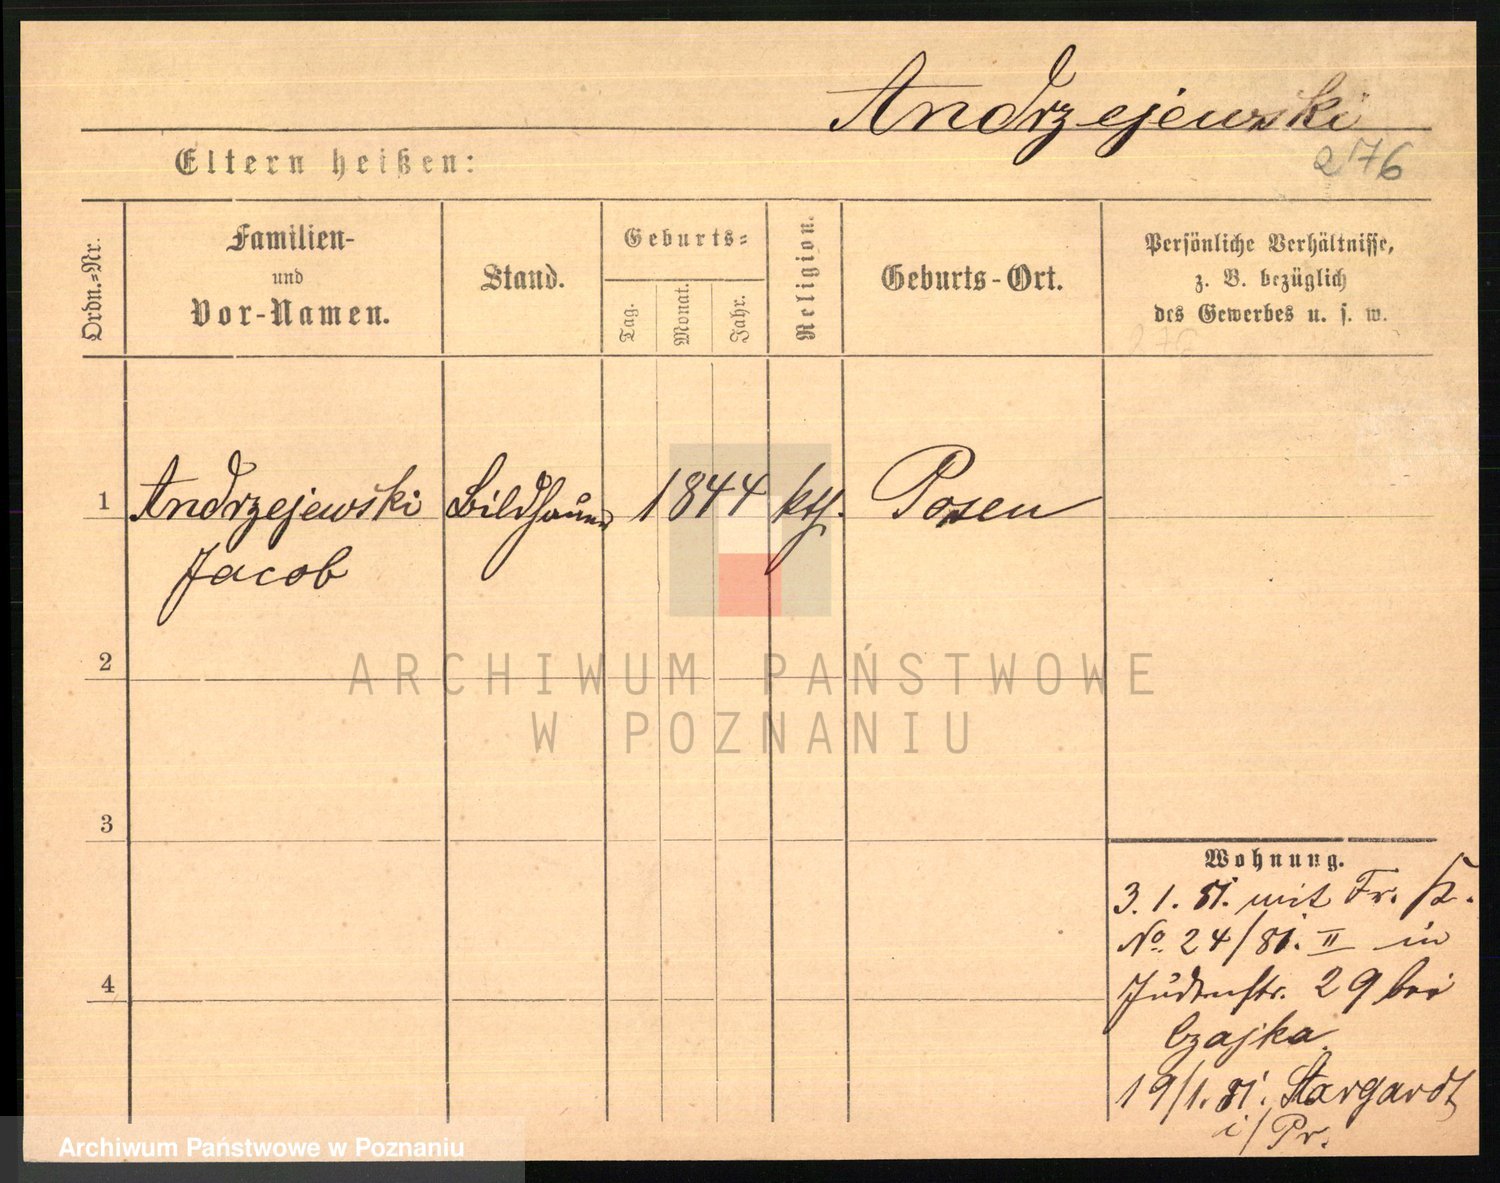 Andrzejewski
276
Eltern heißen:
Ordn.=Nr.
Familien-
und
Vor-Namen.
Stand.
Geburts=
Tag.
Monat.
Jahr.
Religion.
Geburts-Ort.
Persönliche Verhältnisse,
z. B. bezüglich
des Gewerbes u. s. w.
1 Andrzejewski Bildhauer 1844 kth. Posen
Jacob
2
3
4
ARCHIWUM PAŃSTWOWE
W POZNANIU
Wohnung.
3. 1. 81. mit Fr.
No. 24/81. II in
Judenstr. 29 bei
Czajka.
19/1. 81. Stargardt
i/Pr.
Archiwum Państwowe w Poznaniu